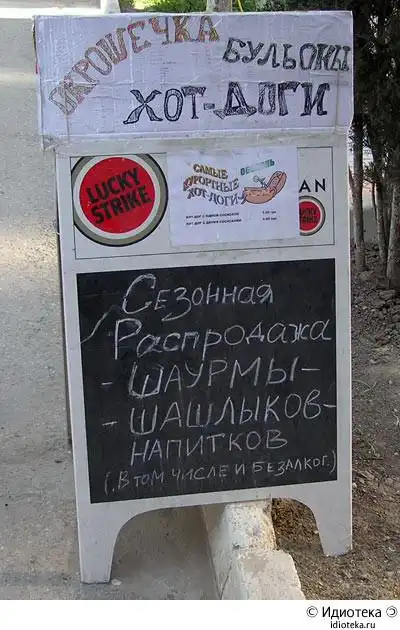 ОКРОШЕЧКА
БУЛЬОНЫ
ХОТ-ДОГИ
LUCKY
STRIKE
САМЫЕ
КУРОРТНЫЕ
ХОТ-ДОГИ
AN
Сезонная
Распродажа
- ШАУРМЫ -
- ШАШЛЫКОВ -
НАПИТКОВ
(, В ТОМ ЧИСЛЕ И БЕЗАЛКОГ.)
© Идиотека
idioteka.ru